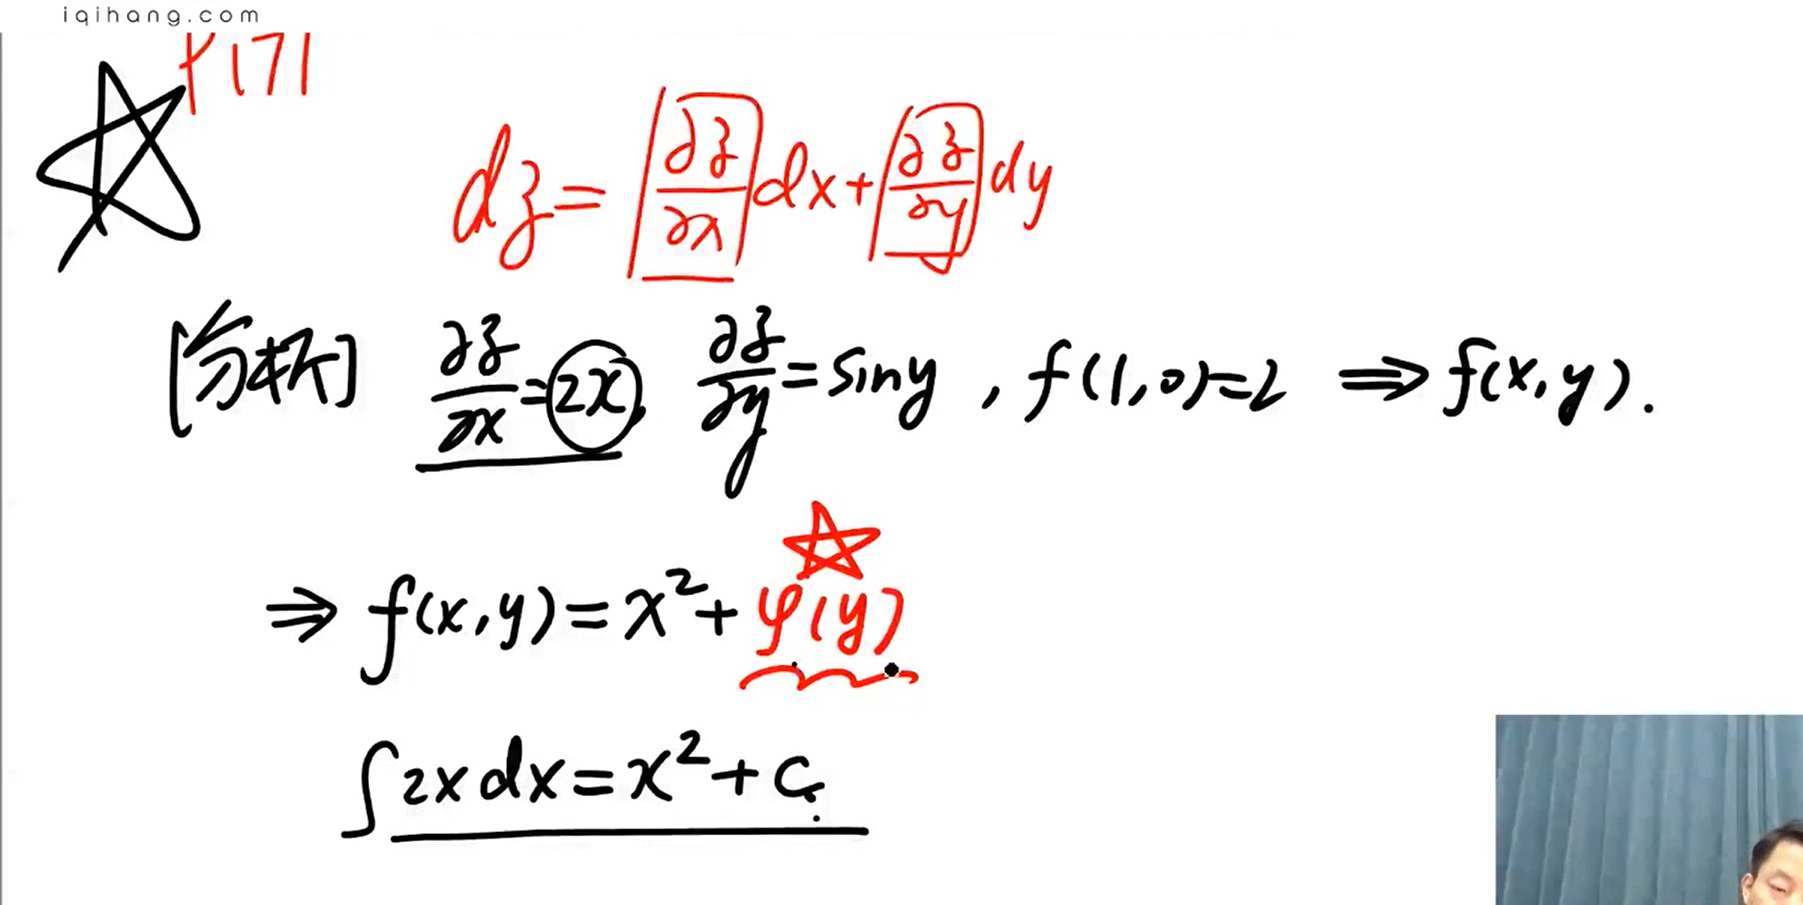 iqihang.com
P171
dz = ∂z/∂x dx + ∂z/∂y dy
[分析] ∂z/∂x = 2x, ∂z/∂y = siny, f(1,0)=2 ⇒ f(x,y).
⇒ f(x,y) = x² + φ(y)
∫2xdx = x² + C